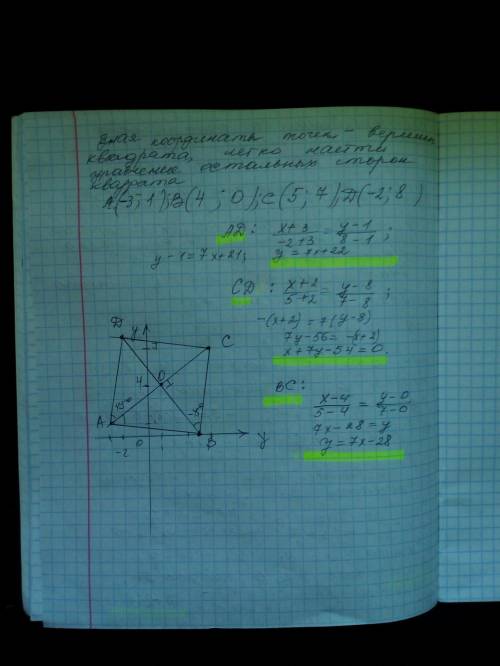 Зная координаты точек - вершин
квадрата, легко найти
уравнение остальных сторон
квадрата
A(-3; 1); B(4 ; 0); C(5; 7); D(-2; 8 )
AD: (x+3)/(-2+3) = (y-1)/(8-1) ;
y-1=7x+21; y=7x+22
CD : (x+2)/(5+2) = (y-8)/(7-8) ;
-(x+2) = 7(y-8)
7y-56= -(x+2)
x+7y-54=0
BC: (x-4)/(5-4) = (y-0)/(7-0)
7x-28=y
y=7x-28
D y
C
4 O
A 45° 45°
-2 0 B y